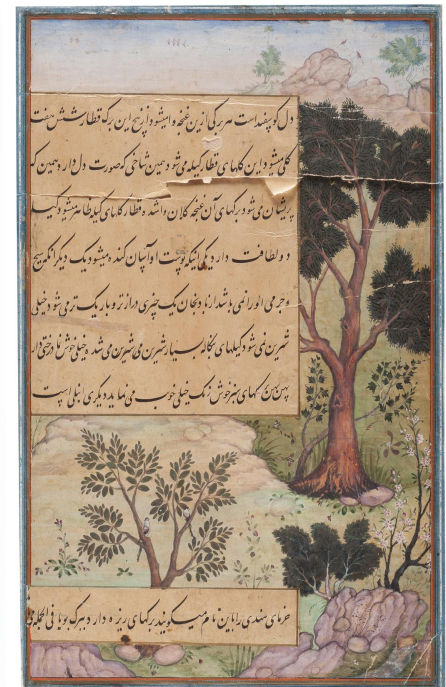 دل گوسفند است هر برگی ازین غنچه وا میشود از بیخ این برگ قطار شش هفت
گلی میشود این گلهای قطار کیله می شود همین شاخی که صورت دل دارد همین که
پریشان می شود برگهای آن غنچه کلان وا شده قطار گلهای کیله ظاهر میشود کیله
دو لطافت دارد یکی اینکه پوست او آسان کنده میشود یک دیگر انکه هیچ
نمی باشد از بادنجان یک چیزی درازتر و باریک تر می شود خیلی
شیرین نمی شود کیلهای بنگاله بسیار شیرین می شده خیلی خوش نما درختی دارد
پهن پهن برگهای سبز خوش رنگ خیلی خوب می نماید دیگری انبلی است
خرمای هندی را باین نام میگویند برگهای ریزه دارد ببرگ بویا فی الجمله